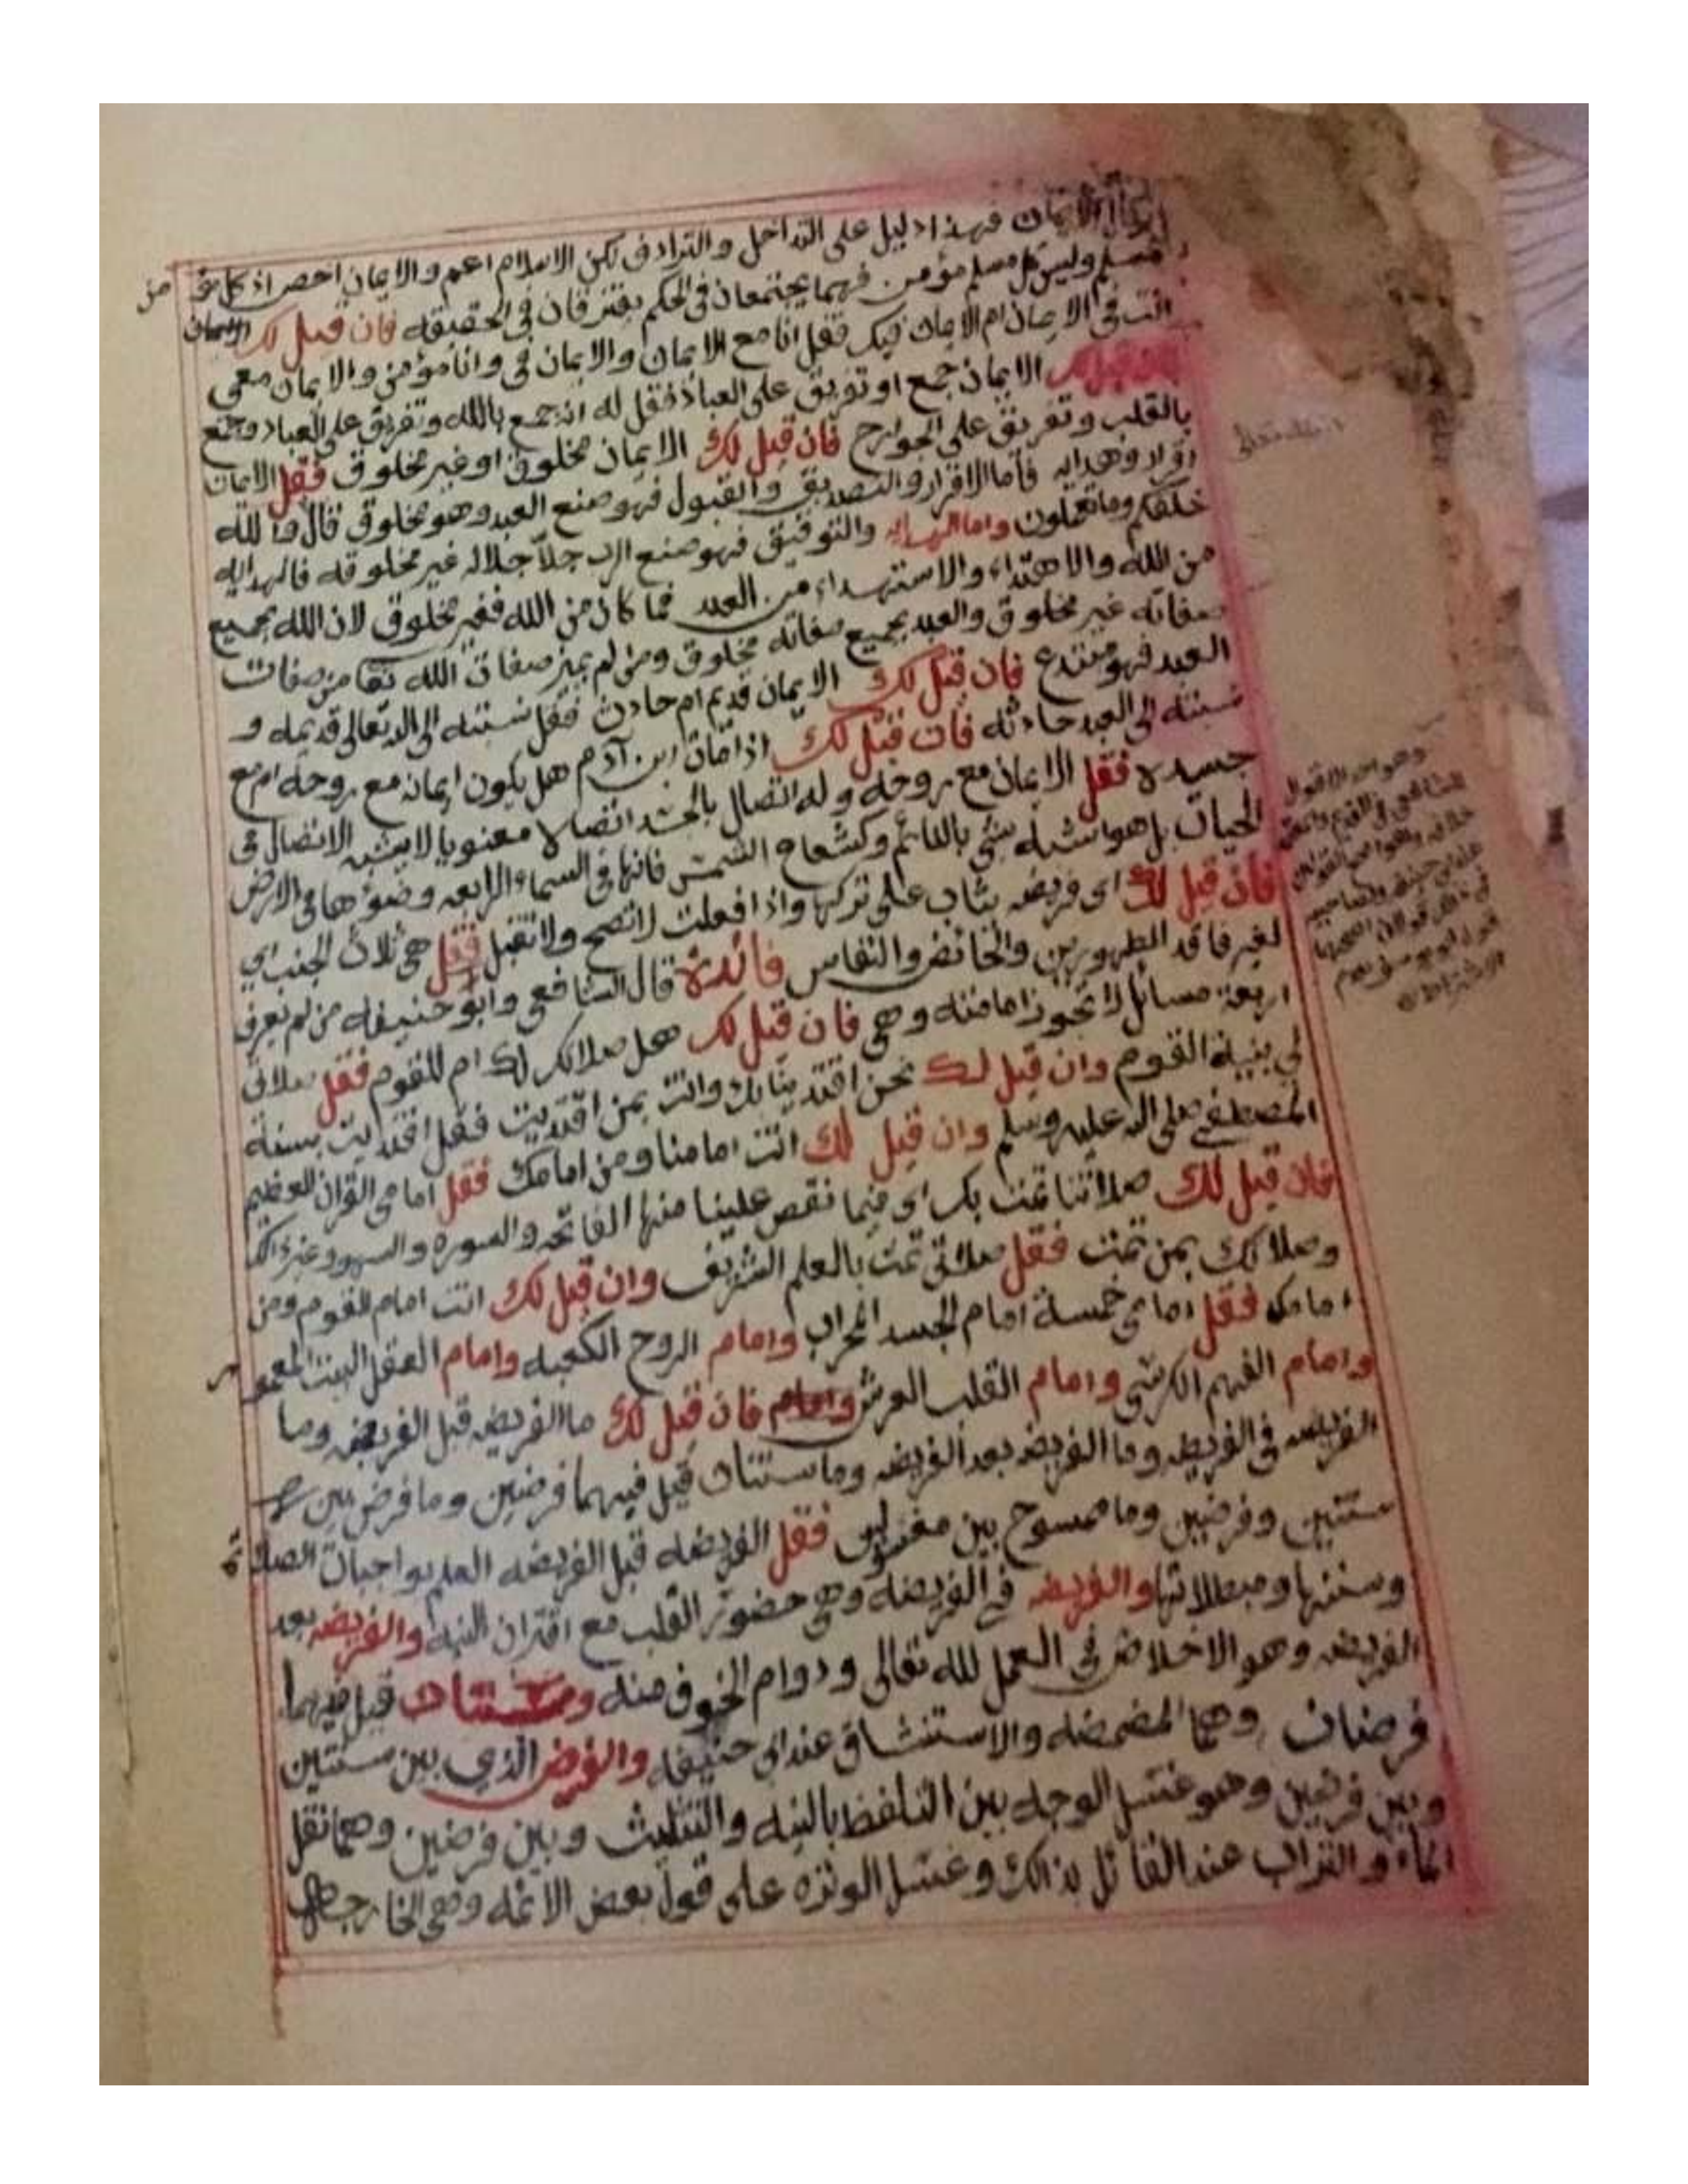 الايمان فهذا دليل على التداخل والترادف لكن الاسلام اعم والايمان اخص اذ كل مؤ من
مسلم وليس كل مسلم مؤمن فهما يجتمعان في الحكم يفترقان في الحقيقه فان قيل لك
انت في الايمان ام الايمان فيك فقل انا مع الايمان والايمان في وانا مؤمن والايمان معي
الايمان جمع او تفريق على العباد فقل له انه جمع بالله وتفريق على العباد وجمع
بالقلب وتفريق على الجوارح فان قيل لك الايمان مخلوق او غير مخلوق فقل الايمان
اقرار وهدايه فأما الاقرار والتصديق والقبول فهو صنع العبد وهو مخلوق قال والله
خلقكم وما تعملون واما الهدايه والتوفيق فهو صنع الرب جلا جلاله غير مخلوقه فالهدايه
من الله والاهتداء والاستهداء من العبد فما كان من الله فغير مخلوق لان الله بجميع
صفاته غير مخلوق والعبد بجميع صفاته مخلوق ومن لم يميز صفات الله تعا من صفات
العبد فهو مبتدع فان قيل لك الايمان قديم ام حادث فقل نسبته الى الله تعالى قديمه و
نسبته الى العبد حادثه فان قيل لك اذا مات ابن آدم هل يكون ايمانه مع روحه ام مع
جسده فقل الايمان مع روحه وله اتصال بالجسد اتصالا معنويا لا يشبه الاتصال في
الحيات بل هو اشبه شي بالنائم وكشعاع الشمس فانها في السماء الرابعه وضوءها في الارض
فان قيل لك اي فريضه يثاب على تركها واذا فعلت لا تصح ولا تقبل فقل هي ثلاث الجنب اي
لغير فاقد الطهورين والحائض والنفاس فائدة قال الشافعي وابو حنيفه من لم يعرف
اربعة مسائل لا تجوز امامته وهي فان قيل لك هل صلاتك لك ام للقوم فقل صلاتي
لي بنية القوم وان قيل لك نحن اقتدينا بك وانت بمن اقتديت فقل اقتديت بسنة
المصطفى صلى الله عليه وسلم وان قيل لك انت امامنا ومن امامك فقل امامي القران العظيم
فان قيل لك صلاتنا تمت بك اي فيما نقص علينا منها الفاتحه والسوره والسهو وغير ذلك
وصلاتك بمن تمت فقل صلاتي تمت بالعلم الشريف وان قيل لك انت امام القوم ومن
امامك فقل امامي خمسة امام الجسد المحراب وامام الروح الكعبه وامام العقل البيت المعمو ر
وامام الفهم الكرسي وامام القلب العرش فان قيل لك ما الفريضه قبل الفريضه وما
الفريضه في الفريضه وما الفريضه بعد الفريضه وما سنتان قيل فيهما فرضين وما فرض بين
سنتين وفرضين وما ممسوح بين مغسولين فقل الفريضه قبل الفريضه العلم بواجبات الصلاة
وسننها ومبطلاتها والفريضه في الفريضه وهي حضور القلب مع اقتران النيه والفريضه بعد
الفريضه وهو الاخلاص في العمل لله تعالى ودوام الخوف منه وسنتان قيل فيهما
فرضان وهما المضمضه والاستنشاق عند ابي حنيفه والفرض الذي بين سنتين
وبين فرضين وهو غسل الوجه بين التلفظ بالنيه والتثليث وبين فرضين وهما نقل
الماء والتراب عند القائل بذالك وغسل الوتره على قول بعض الائمه وهي الخارجه